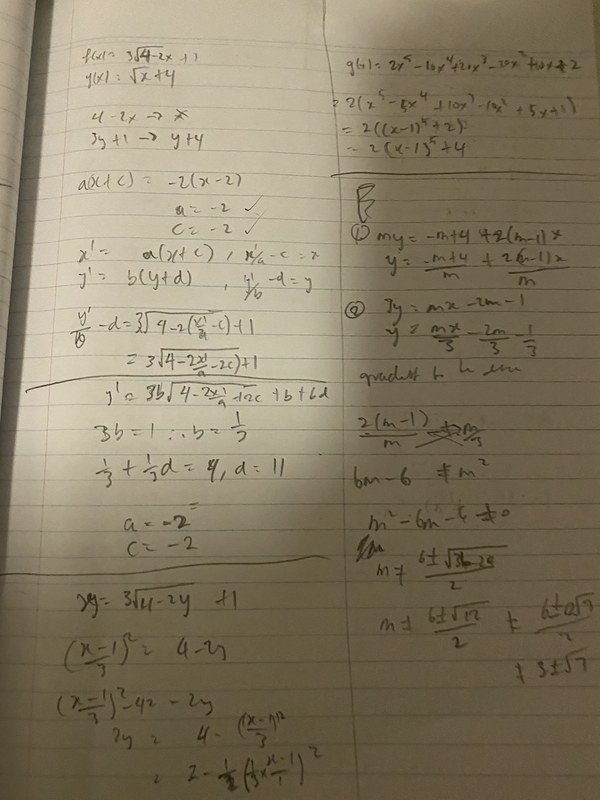 f(x) = 3√4-2x + 1
y(x) = √x + 4
4-2x → x
3y+1 → y+4
a(x+c) = -2(x-2)
a = -2 ✓
c = -2 ✓
x' = a(x+c) , x'/a - c = x
y' = b(y+d) , y'/b - d = y
y'/b - d = 3√4-2(x'/a - c) + 1
= 3√4-2x'/a -2c) + 1
y' = 3b√4-2x'/a +2c + b + bd
3b = 1 ∴ b = 1/3
1/3 + 1/3d = 4, d = 11
a = -2
c = -2
xy = 3√4-2y + 1
(x-1/3)² = 4-2y
(x-1/3)² - 4 = - 2y
2y = 4 - (x-1/3)²
= 2 - 1/2 (1/3 × x-1/1)²
g(x) = 2x⁵ - 10x⁴ + 20x³ - 20x² + 10x + 2
= 2(x⁵ - 5x⁴ + 10x³ - 10x² + 5x + 1)
= 2((x-1)⁵ + 2)
= 2(x-1)⁵ + 4
① my = -m+4 + 2(m-1)x
y = -m+4/m + 2(m-1)x/m
② 3y = mx - 2m - 1
y = mx/3 - 2m/3 - 1/3
gradient to be
2(m-1)/m ≠ m/3
6m - 6 ≠ m²
m² - 6m - 6 ≠ 0
m ≠ 6±√36-24/2
m ≠ 6±√12/2 ≠ 6±2√3/2
≠ 3±√3